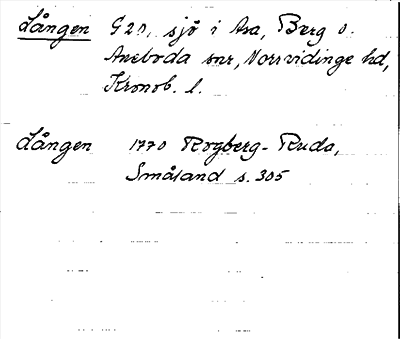 Lången G20, sjö i Asa, Berg o.
Aneboda snr, Norrvidinge hd,
Kronob. l.
Lången 1770 Rogberg-Ruda,
Småland s. 305